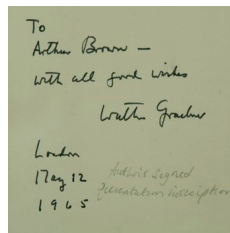 To
Arthur Brown —
with all good wishes
Walter Graebner
London
May 12
1965
Author's signed
presentation inscription